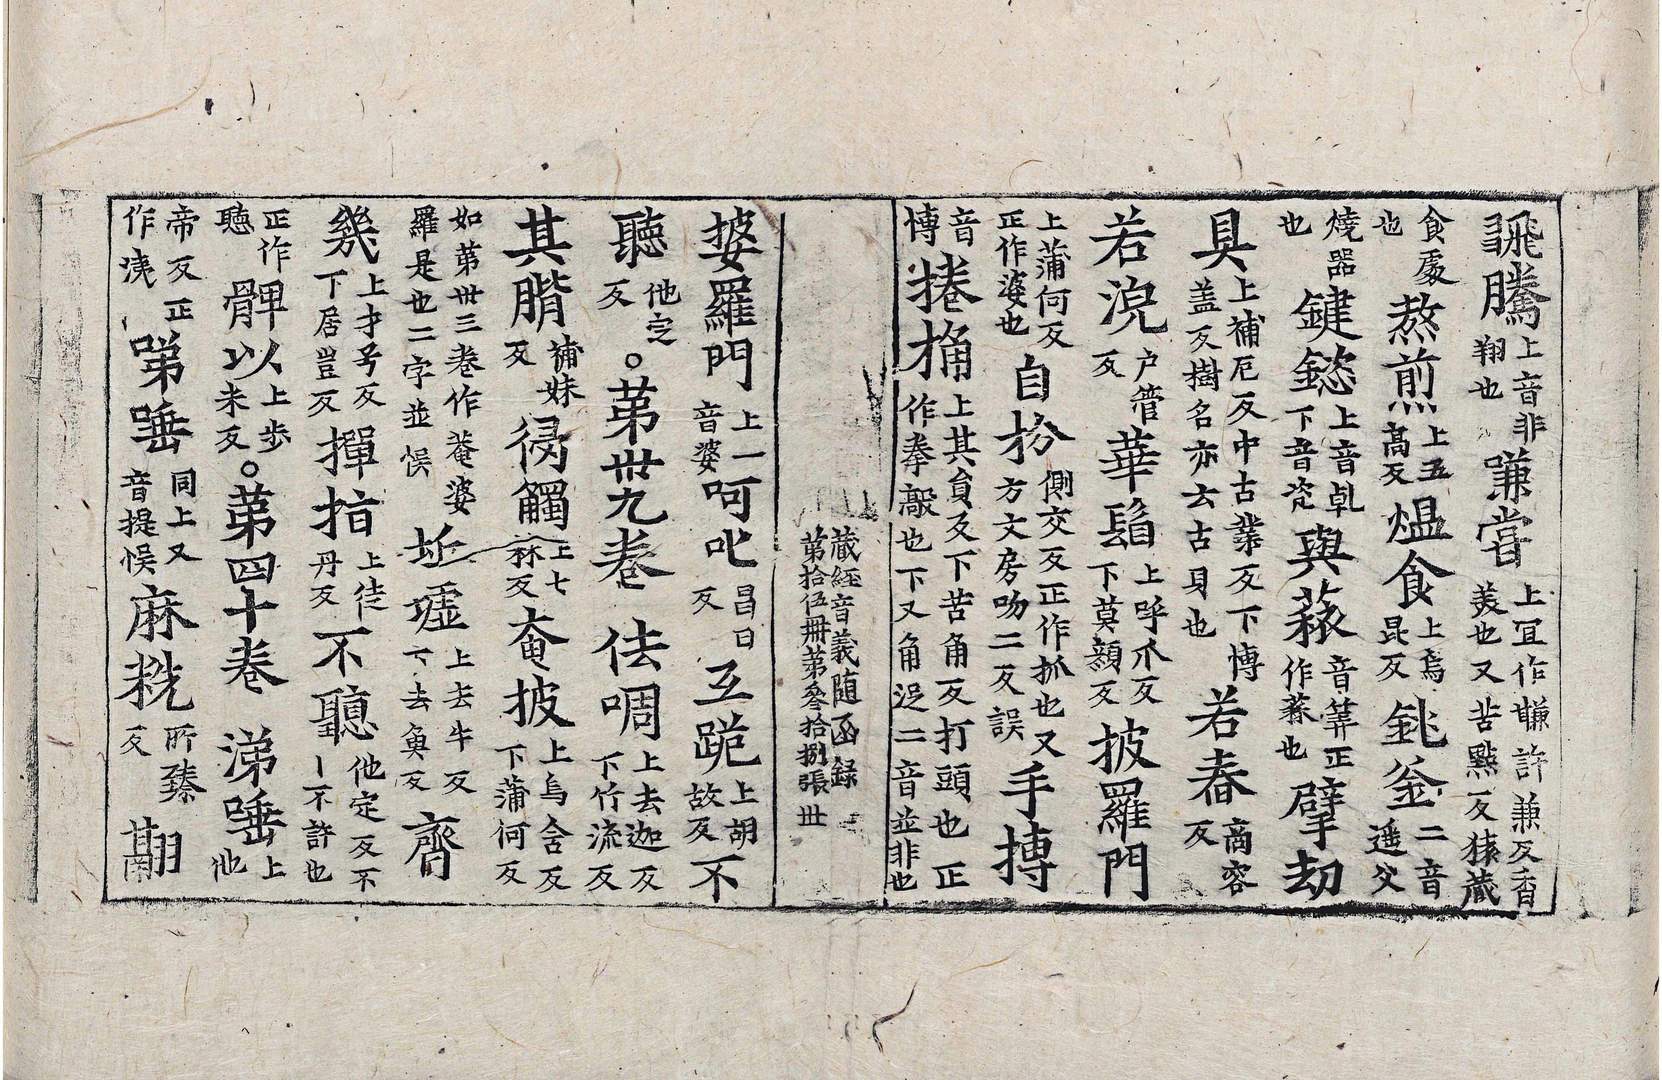 騰上音非翔也嗛甞上冝作嗛許兼反香美也又苦㸃反猿蔵
食處也熬煎上五髙反熅食上烏昆反銚釡二音遥父
燒器也鍵鎡上音乹下音瓷與蔱音筭正作蒜也擘劫
具上補厄反中古業反下博盖反樹名亦去古貝也若舂商容反
若涗户管反華䰉上呼爪反下莫顔反披羅門
上蒲何反正作婆也自扮側交反正作抓也又方文房吻二反誤手摶
音博捲捔上其貟反下苦角反打頭也正作拳㱿也下又角逞二音並非也
蔵経音義随函録 第拾伍册第叄拾捌張 丗
婆羅門上一音婆呵叱昌日反互跪上胡故反不
聽他㝎反。苐丗九卷佉啁上去迦反下竹流反
其䐡補妹反㑴觸上七林反奄披上烏含反下蒲何反
如苐丗三卷作菴婆羅是也二字並悮坵墟上去牛反下去魚反齊
㡬上才兮反下居豈反撣指上徒丹反不聽他定反不丨不許也
正作聽髀以上歩米反。苐四十卷涕唾上他
帝反正作洟啼唾同上又音提悮麻𥹥所臻反